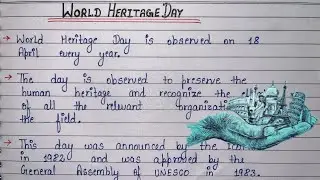 WORLD HERITAGE DAY
→ World Heritage Day is observed on 18
April every year.
→ The day is observed to preserve the
human heritage and recognize the
of all the relevant
the field.
→ This day was announced by the
in 1982 and was approved by the
General Assembly of UNESCO in 1983.